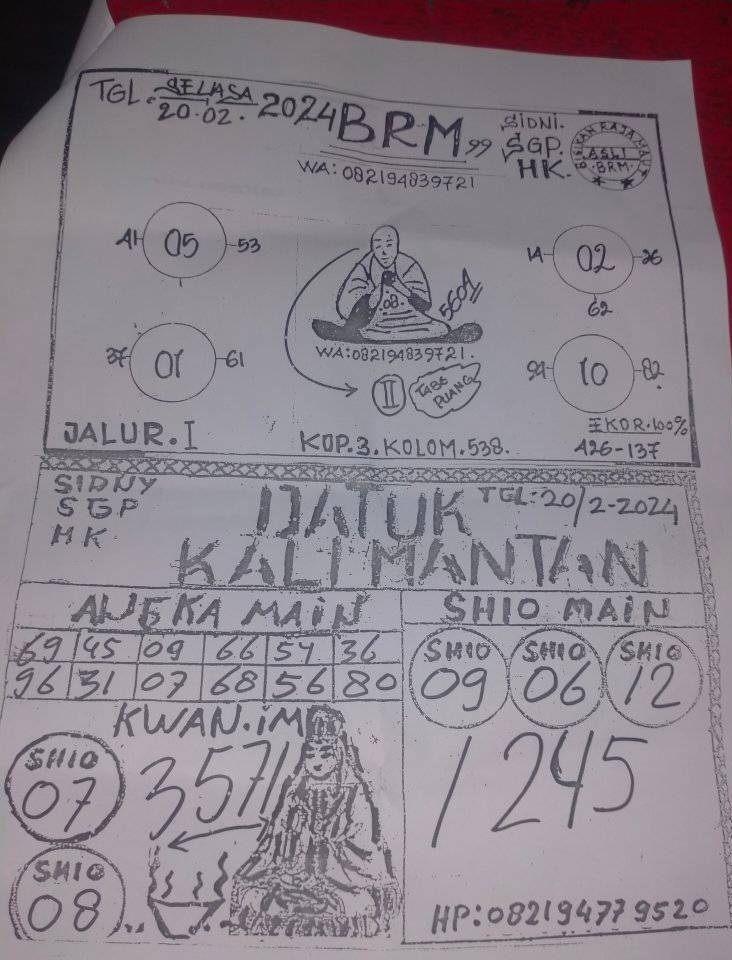 TGL. SELASA 20.02. 2024
BRM.99
WA: 082194839721
SIDNI.
SGP.
HK.
BISIKAN RAJA MAUT
ASLI
BRM
41 05 53
14 02 26
62
08.
5601
WA:082194839721.
37 01 61
II
TABE PUANG
94 10 82
JALUR.I
KOP.3.KOLOM.538.
KOR.100%
426-137
SIDNY
SGP
HK
DATUK
KALIMANTAN
TGL:20/2-2024
ANGKA MAIN
69 45 09 66 54 36
96 31 07 68 56 80
SHIO MAIN
SHIO 09
SHIO 06
SHIO 12
KWAN.IM
SHIO 07
3571
1245
SHIO 08
HP:082194779520